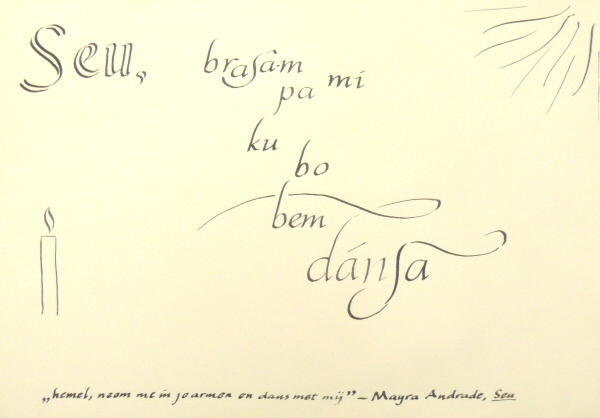 Seu, brasám
pa mi
ku
bo
bem
dánsa
„hemel, neem me in je armen en dans met mij” – Mayra Andrade, Seu